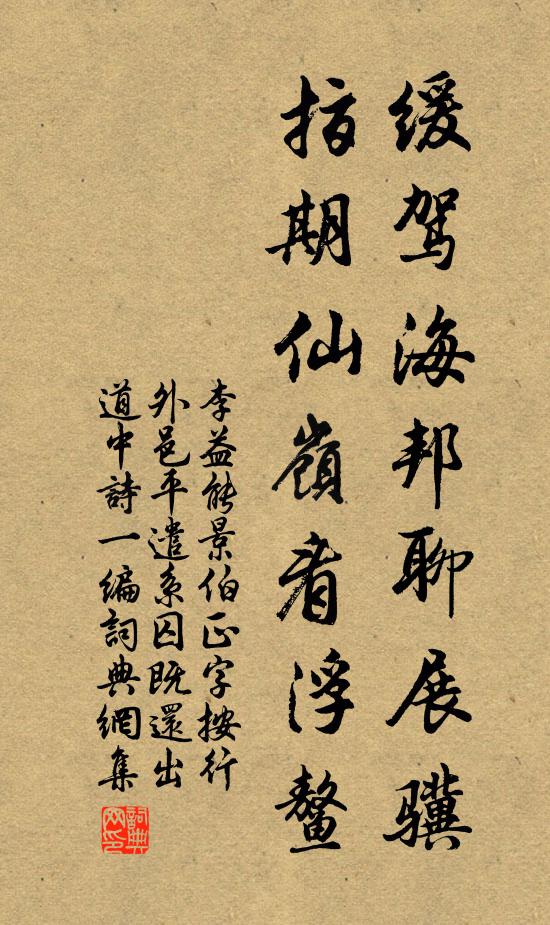 缓驾海邦聊展骥
指期仙嶺看浮鳌
李益能景伯正字按行
外邑平遣系囚既還出
道中詩一编詞典網集
詞典网印